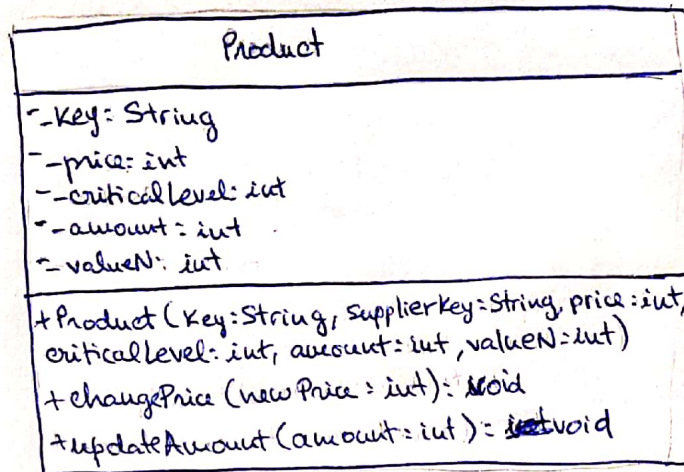 Product
-_key: String
-_price: int
-_criticalLevel: int
-_amount: int
-_valueN: int
+Product(key:String, supplierKey:String, price:int,
criticalLevel: int, amount:int, valueN:int)
+changePrice(newPrice: int): void
+updateAmount(amount: int): void